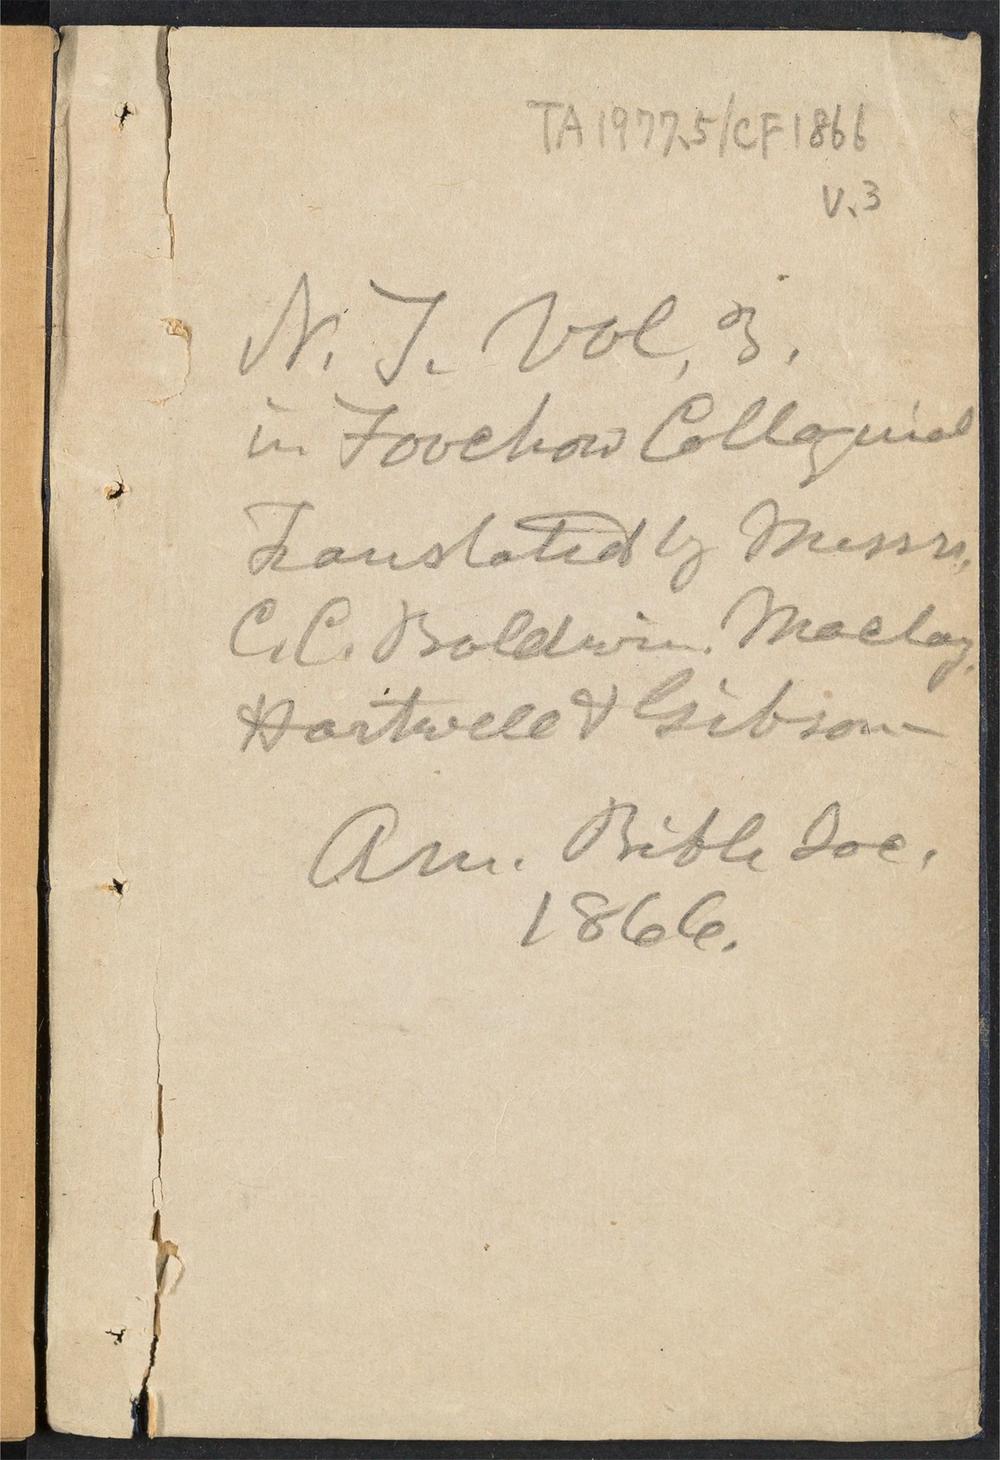 TA 1977.5/CF 1866
V.3
N. T. Vol, 3.
in Foochow Colloquial
Translated by Messrs,
C. C. Baldwin. Maclay,
Hartwell & Gibson
Am. Bible Soc.
1866.